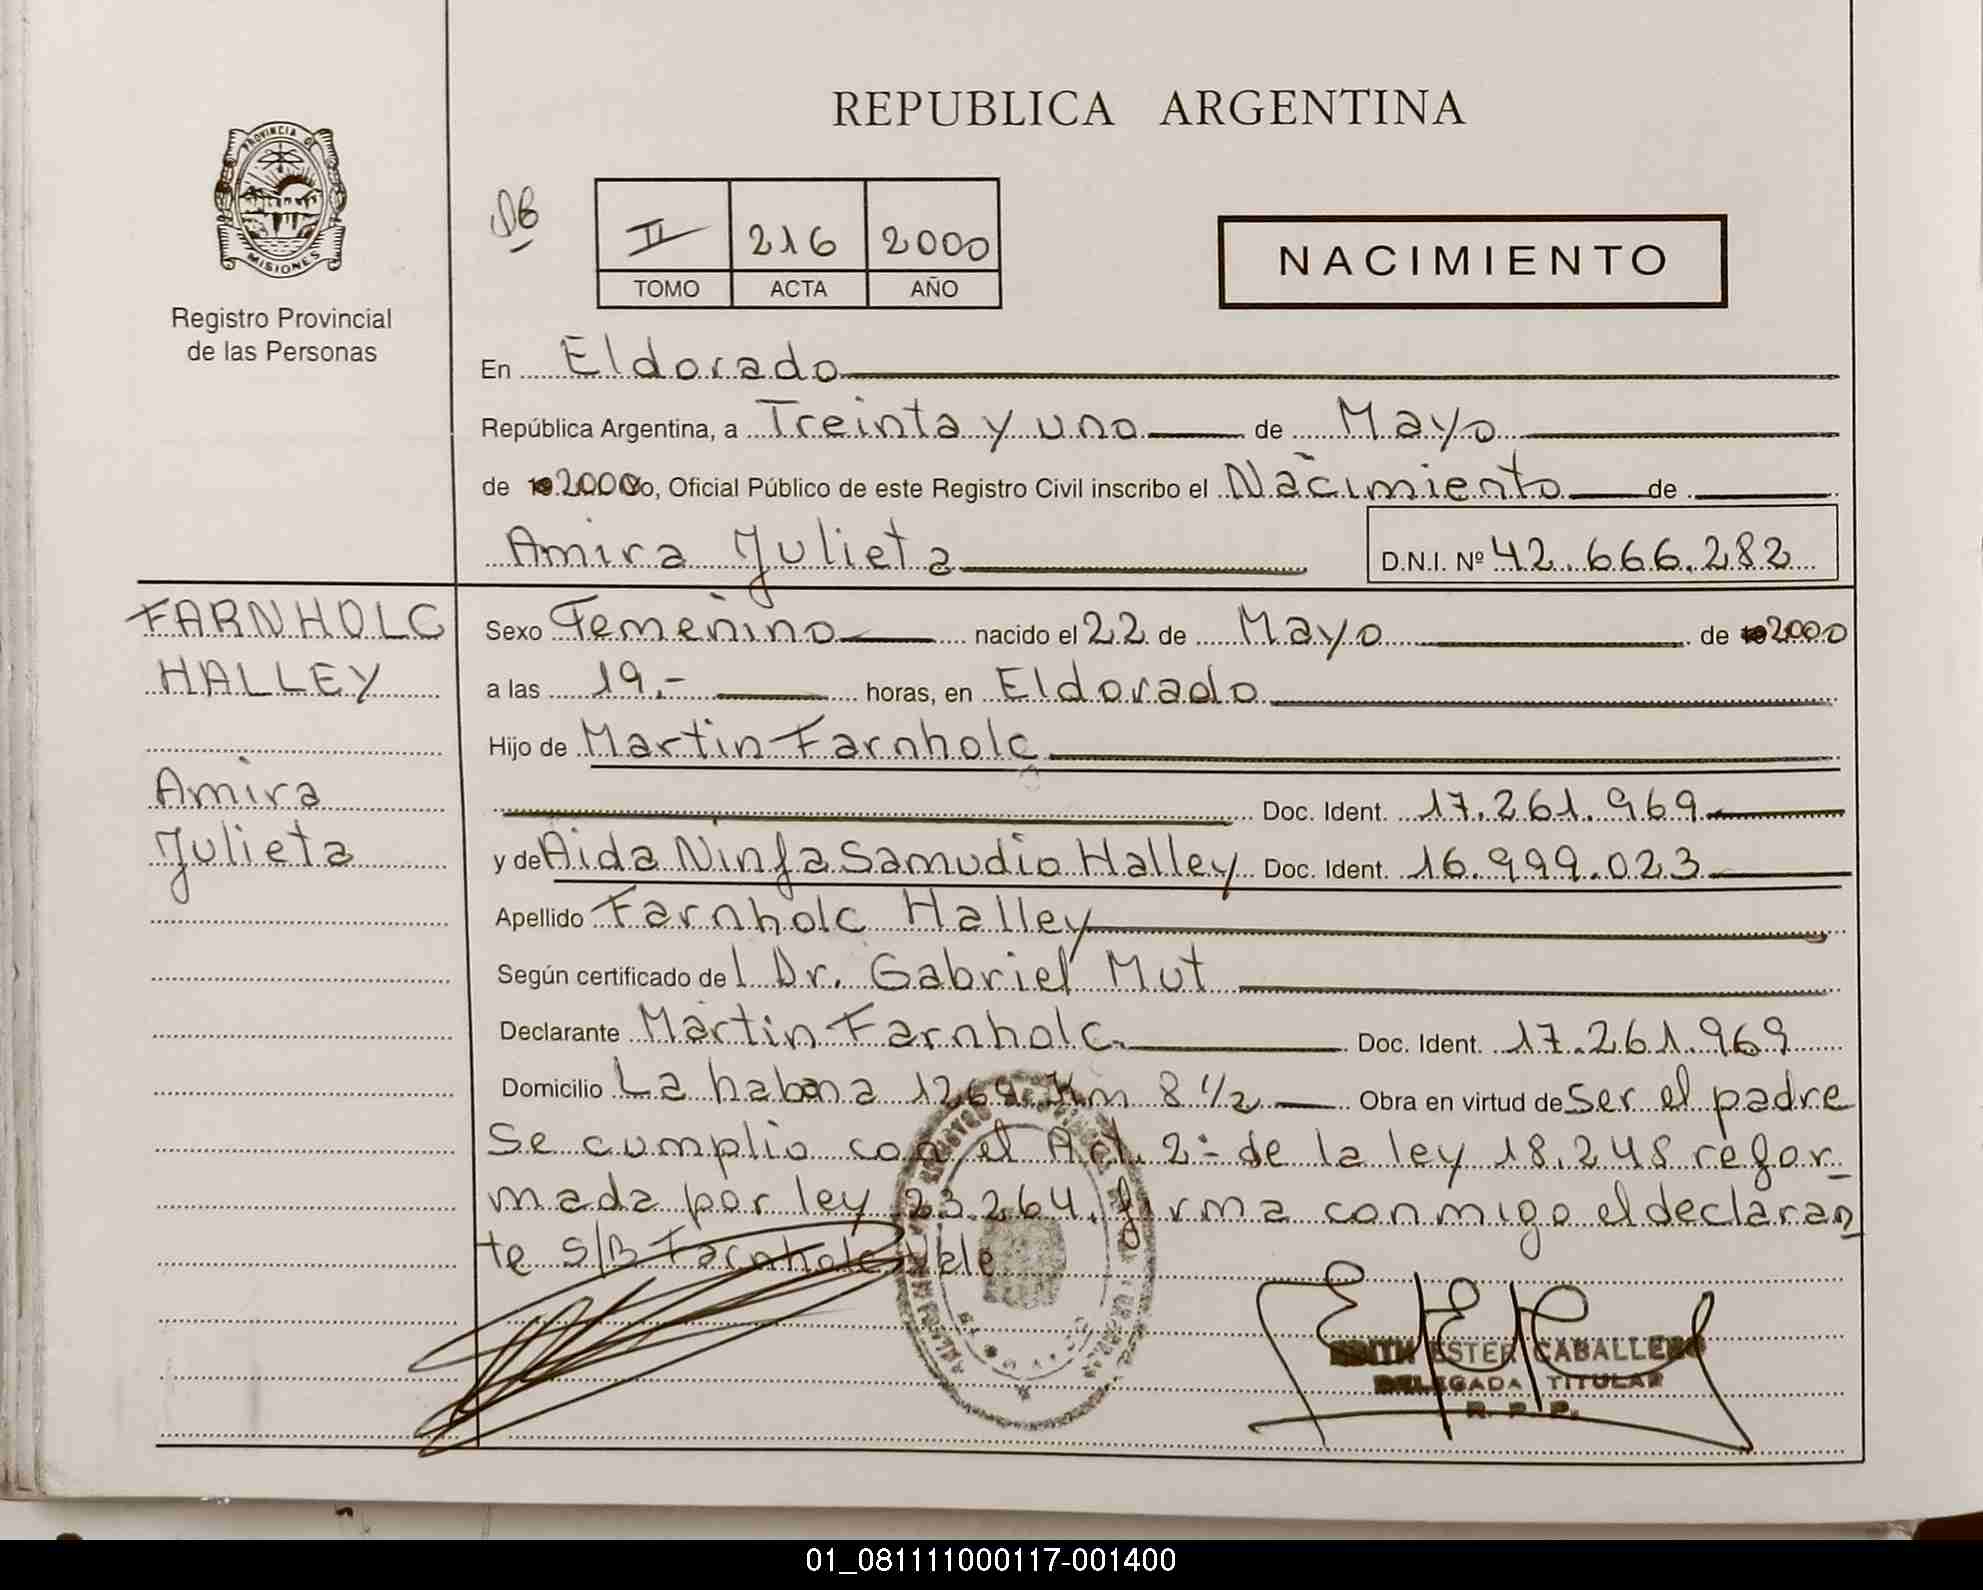 REPUBLICA ARGENTINA
PROVINCIA DE
MISIONES
Registro Provincial
de las Personas
II 216 2000
TOMO ACTA AÑO
NACIMIENTO
En Eldorado
República Argentina, a Treinta y uno de Mayo
de 2000 Yo, Oficial Público de este Registro Civil inscribo el Nacimiento de
Amira Julieta
D.N.I. Nº 42.666.282
FARNHOLC
HALLEY
Amira
Julieta
Sexo Femenino nacido el 22 de Mayo de 2000
a las 19.- horas, en Eldorado
Hijo de Martin Farnholc
Doc. Ident. 17.261.969
y de Aida Ninfa Samudio Halley Doc. Ident. 16.999.023
Apellido Farnholc Halley
Según certificado del Dr. Gabriel Mut
Declarante Martin Farnholc. Doc. Ident. 17.261.969
Domicilio La habana 1269 Km 8 1/2 Obra en virtud de ser el padre
Se cumplio con el Art. 2- de la ley 18.248 refor_
mada por ley 23.264. firma conmigo el declaran_
te S/B Farnholc Vale
EDITH ESTER CABALLERO
DELEGADA TITULAR
R. P. P.
01_081111000117-001400